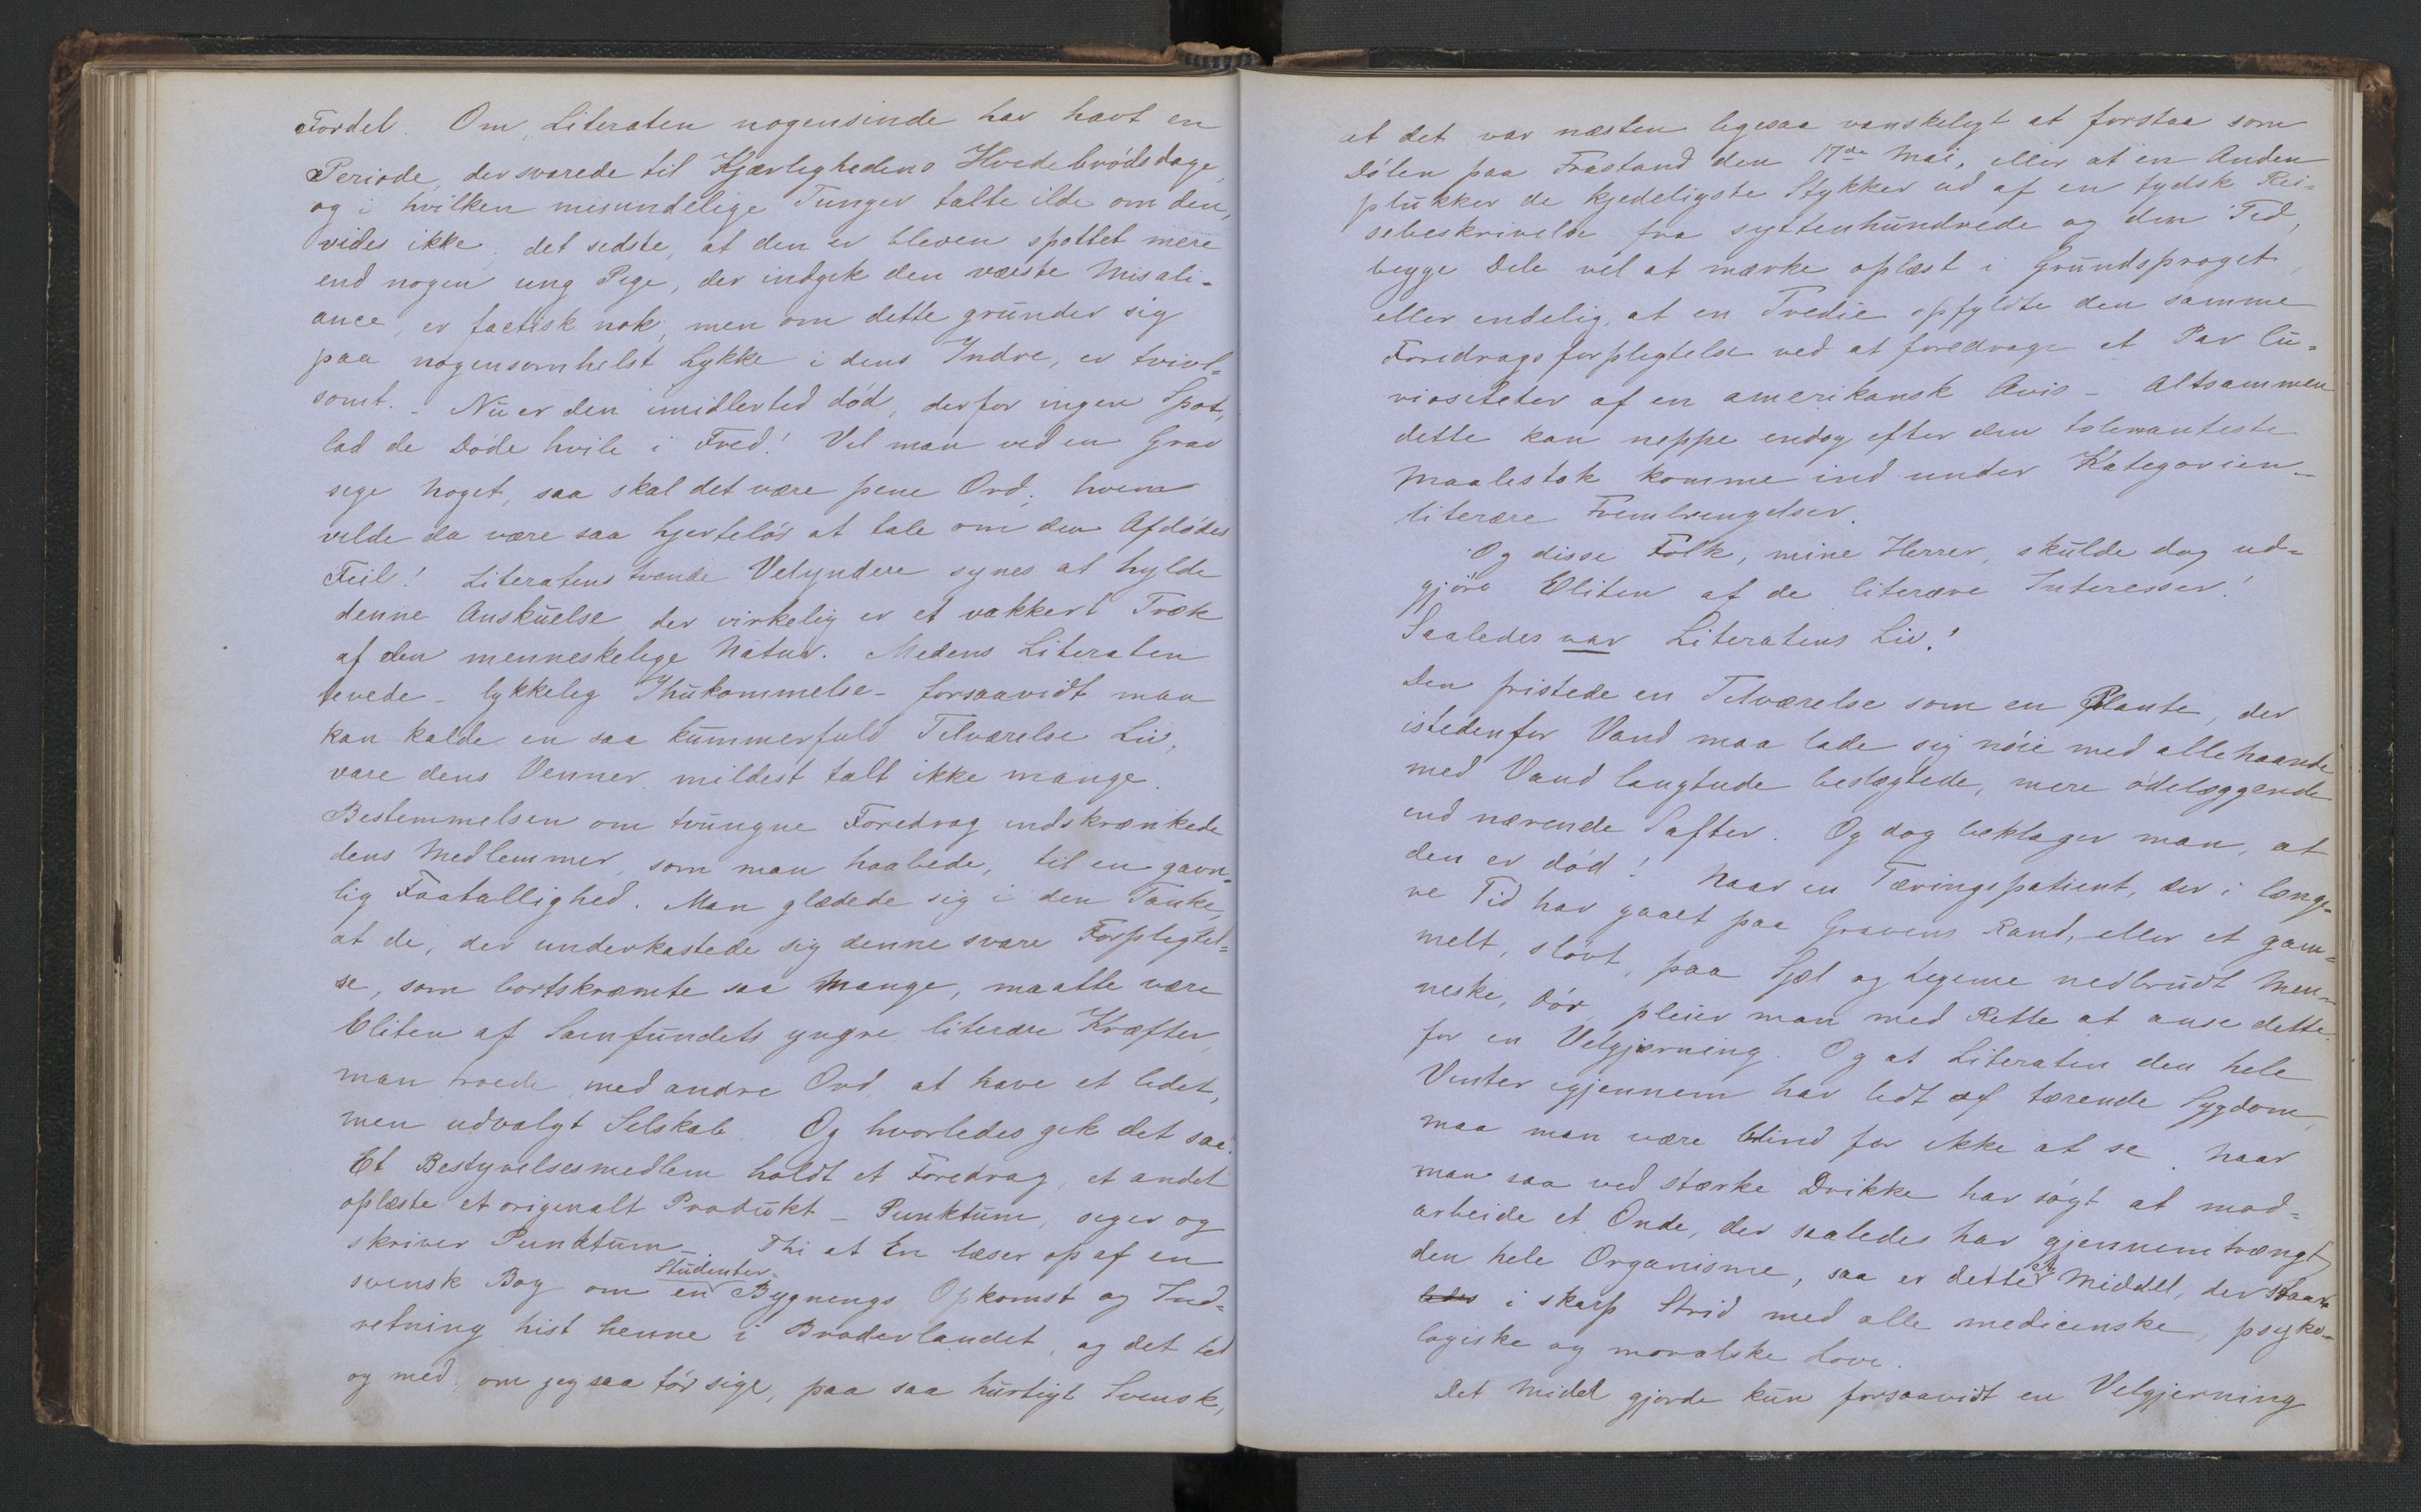 Fordel. Om Literaten nogensinde har havt en
Periode, der svarede til Kjærlighedens Hvedebrødsdage,
og i hvilken misundelige Tunger talte ilde om den,
vides ikke; det sidste, at den er bleven spottet mere
end nogen ung Pige, der indgik den værste Misali-
ance, er factisk nok, men om dette grunder sig
paa nogensomhelst Lykke i dens Indre, er tvivl-
somt. - Nu er den imidlertid død, derfor ingen Spot,
lad de Døde hvile i Fred! Vil man ved en Grav
sige noget, saa skal det være pene Ord; hvem
vilde da være saa hjerteløs at tale om den Afdødes
Feil! Literatens tvende Velyndere synes at hylde
denne Anskuelse, der virkelig er et vakkert Træk
af den menneskelige Natur. Medens Literaten
levede - lykkelig Ihukommelse - forsaavidt man
kan kalde en saa kummerfuld Tilværelse Liv,
vare dens Venner mildest talt ikke mange.
Bestemmelsen om tvungne Foredrag indskrænkede
dens Medlemmer, som man haabede, til en gavn-
lig Faatallighed. Man glædede sig i den Tanke,
at de, der underkastede sig denne svare Forpligtel-
se, som bortskræmte saa mange, maatte være
Eliten af Samfundets yngre literære Kræfter,
man troede, med andre Ord, at have et lidet,
men udvalgt Selskab. Og hvorledes gik det saa?
Et Bestyrelsesmedlem holdt et Foredrag, et andet
oplæste et originalt Produkt - Punktum, siger og
skriver Punktum - Thi at En læser op af en
svensk Bog om en Studenter-Bygnings Opkomst og Ind-
retning hist henne i Broderlandet, og det til
og med, om jeg saa tør sige, paa saa hurtigt Svensk,
at det var næsten ligesaa vanskeligt at forstaa som
Dølen paa Frastand den 17de Mai, eller at en Anden
plukker de kjedeligste Stykker ud af en tydsk Rei-
sebeskrivelse fra syttenhundrede og den Tid,
begge Dele vel at mærke oplæst i Grundsproget,
eller endelig, at en Tredie opfyldte den samme
Foredragsforpligtelse ved at foredrage et Par Cu-
riositeter af en amerikansk Avis - altsammen
dette kan neppe endog efter den toleranteste
Maalestok komme ind under Kategorien -
literære Frembringelser.
Og disse Folk, mine Herrer, skulde dog ud-
gjøre Eliten af de literære Interesser!
Saaledes var Literatens Liv!
Den fristede en Tilværelse som en Plante, der
istedenfor Vand maa lade sig nøie med allehaande
med Vand langtude beslægtede, mere ødelæggende
end nærende Safter. Og dog beklager man, at
den er død! Naar en Tæringspatient, der i længe-
re Tid har gaaet paa Gravens Rand, eller et gam-
melt, sløvt, paa Sjæl og Legeme nedbrudt Men-
neske, dør, pleier man med Rette at anse dette
for en Velgjærning. Og at Literaten den hele
Vinter igjennem har lidt af tærende Sygdom,
maa man være blind for ikke at se. Naar
man saa ved stærke Drikke har søgt at mod-
arbeide et Onde, der saaledes har gjennemtrængt
den hele Organisme, saa er dette et Middel, der staar
i skarp Strid med alle medicinske, psyko-
logiske og moralske Love.
Det Middel gjorde kun forsaavidt en Velgjerning